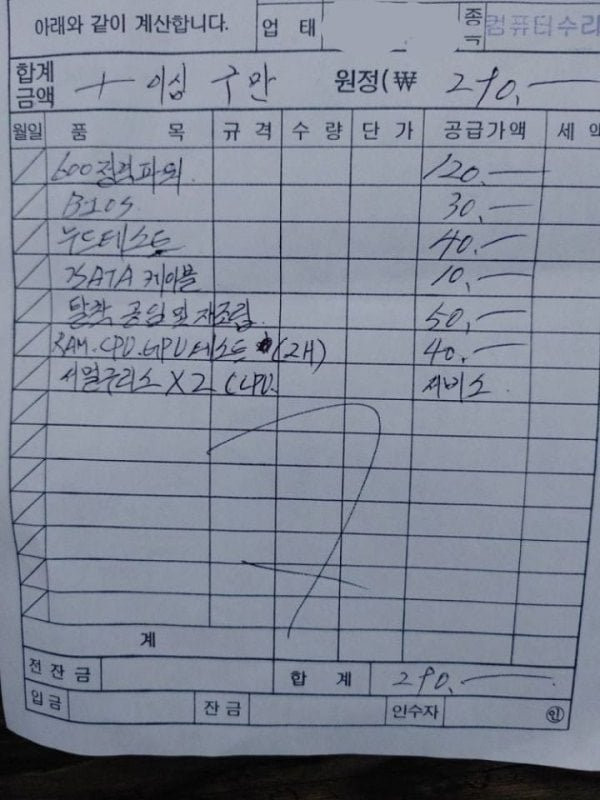 아래와 같이 계산합니다. 업 태 종 컴퓨터수리
합계금액 이십 구만 원정(₩ 290.—
월일 품 목 규 격 수 량 단 가 공급가액 세 액
600정격파워 120.—
BIOS 30.—
누드테스트 40.—
SATA 케이블 10.—
탈착 공임 및 재조립. 50.—
RAM.CPU.GPU 테스트 (2H) 40.—
써멀구리스 X2 (CPU. 서비스.
계
전잔금 합 계 290.—
입금 잔금 인수자 ㊞